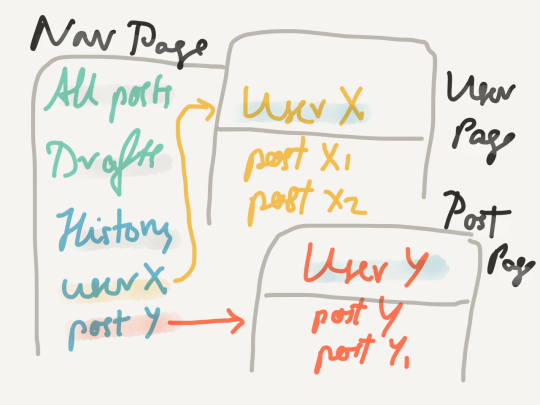 Nav Page
All posts
Drafts
History
user X
post Y
User X
post X1
post X2
User
Page
User Y
post Y
post Y1
Post
Page